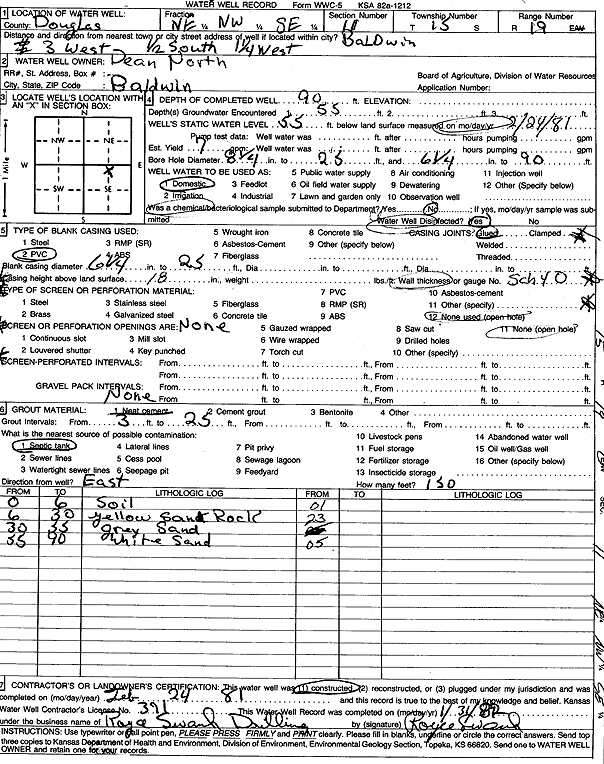 WATER WELL RECORD Form WWC-5 KSA 82a-1212
1 LOCATION OF WATER WELL: Fraction Section Number Township Number Range Number
County: Douglas NE ¼ NW ¼ SE ¼ T 15 S R 19 E/W
Distance and direction from nearest town or city street address of well if located within city? Baldwin
3 West 1/2 South 1/4 West
2 WATER WELL OWNER: Dean North
RR#, St. Address, Box # : Board of Agriculture, Division of Water Resources
City, State, ZIP Code : Baldwin Application Number:
3 LOCATE WELL'S LOCATION WITH AN "X" IN SECTION BOX:
N
NW NE
W E
X
SW SE
S
1 Mile
4 DEPTH OF COMPLETED WELL 90 ft. ELEVATION:
Depth(s) Groundwater Encountered 1 55 ft. 2 ft. 3 ft.
WELL'S STATIC WATER LEVEL 55 ft. below land surface measured on mo/day/yr 2/24/81
Pump test data: Well water was ft. after hours pumping gpm
Est. Yield 1 gpm: Well water was ft. after hours pumping gpm
Bore Hole Diameter 8 1/4 in. to 25 ft., and 6 1/4 in. to 90 ft.
WELL WATER TO BE USED AS: 5 Public water supply 8 Air conditioning 11 Injection well
1 Domestic 3 Feedlot 6 Oil field water supply 9 Dewatering 12 Other (Specify below)
2 Irrigation 4 Industrial 7 Lawn and garden only 10 Observation well
Was a chemical/bacteriological sample submitted to Department? Yes No ; If yes, mo/day/yr sample was submitted
Water Well Disinfected? Yes No
5 TYPE OF BLANK CASING USED: 5 Wrought iron 8 Concrete tile CASING JOINTS: Glued Clamped
1 Steel 3 RMP (SR) 6 Asbestos-Cement 9 Other (specify below) Welded
2 PVC 4 ABS 7 Fiberglass Threaded
Blank casing diameter 6 1/4 in. to 25 ft., Dia in. to ft., Dia in. to ft.
Casing height above land surface 18 in., weight lbs./ft. Wall thickness or gauge No. Sch 40
TYPE OF SCREEN OR PERFORATION MATERIAL: 7 PVC 10 Asbestos-cement
1 Steel 3 Stainless steel 5 Fiberglass 8 RMP (SR) 11 Other (specify)
2 Brass 4 Galvanized steel 6 Concrete tile 9 ABS 12 None used (open hole)
SCREEN OR PERFORATION OPENINGS ARE: None 5 Gauzed wrapped 8 Saw cut 11 None (open hole)
1 Continuous slot 3 Mill slot 6 Wire wrapped 9 Drilled holes
2 Louvered shutter 4 Key punched 7 Torch cut 10 Other (specify)
SCREEN-PERFORATED INTERVALS: From ft. to ft., From ft. to ft.
From ft. to ft., From ft. to ft.
GRAVEL PACK INTERVALS: From ft. to ft., From ft. to ft.
None From ft. to ft., From ft. to ft.
6 GROUT MATERIAL: 1 Neat cement 2 Cement grout 3 Bentonite 4 Other
Grout Intervals: From 3 ft. to 25 ft., From ft. to ft., From ft. to ft.
What is the nearest source of possible contamination: 10 Livestock pens 14 Abandoned water well
1 Septic tank 4 Lateral lines 7 Pit privy 11 Fuel storage 15 Oil well/Gas well
2 Sewer lines 5 Cess pool 8 Sewage lagoon 12 Fertilizer storage 16 Other (specify below)
3 Watertight sewer lines 6 Seepage pit 9 Feedyard 13 Insecticide storage
Direction from well? East How many feet? 150
FROM TO LITHOLOGIC LOG FROM TO LITHOLOGIC LOG
0 6 Soil 01
6 30 yellow Sand Rock 23
30 35 grey Sand
35 90 white Sand 05
7 CONTRACTOR'S OR LANDOWNER'S CERTIFICATION: This water well was (1) constructed, (2) reconstructed, or (3) plugged under my jurisdiction and was
completed on (mo/day/year) Feb 24 81 and this record is true to the best of my knowledge and belief. Kansas
Water Well Contractor's License No. 391 This Water Well Record was completed on (mo/day/yr)
under the business name of Royce Swank Drilling by (signature) Royce Swank
INSTRUCTIONS: Use typewriter or ball point pen, PLEASE PRESS FIRMLY and PRINT clearly. Please fill in blanks, underline or circle the correct answers. Send top
three copies to Kansas Department of Health and Environment, Division of Environment, Environmental Geology Section, Topeka, KS 66620. Send one to WATER WELL
OWNER and retain one for your records.